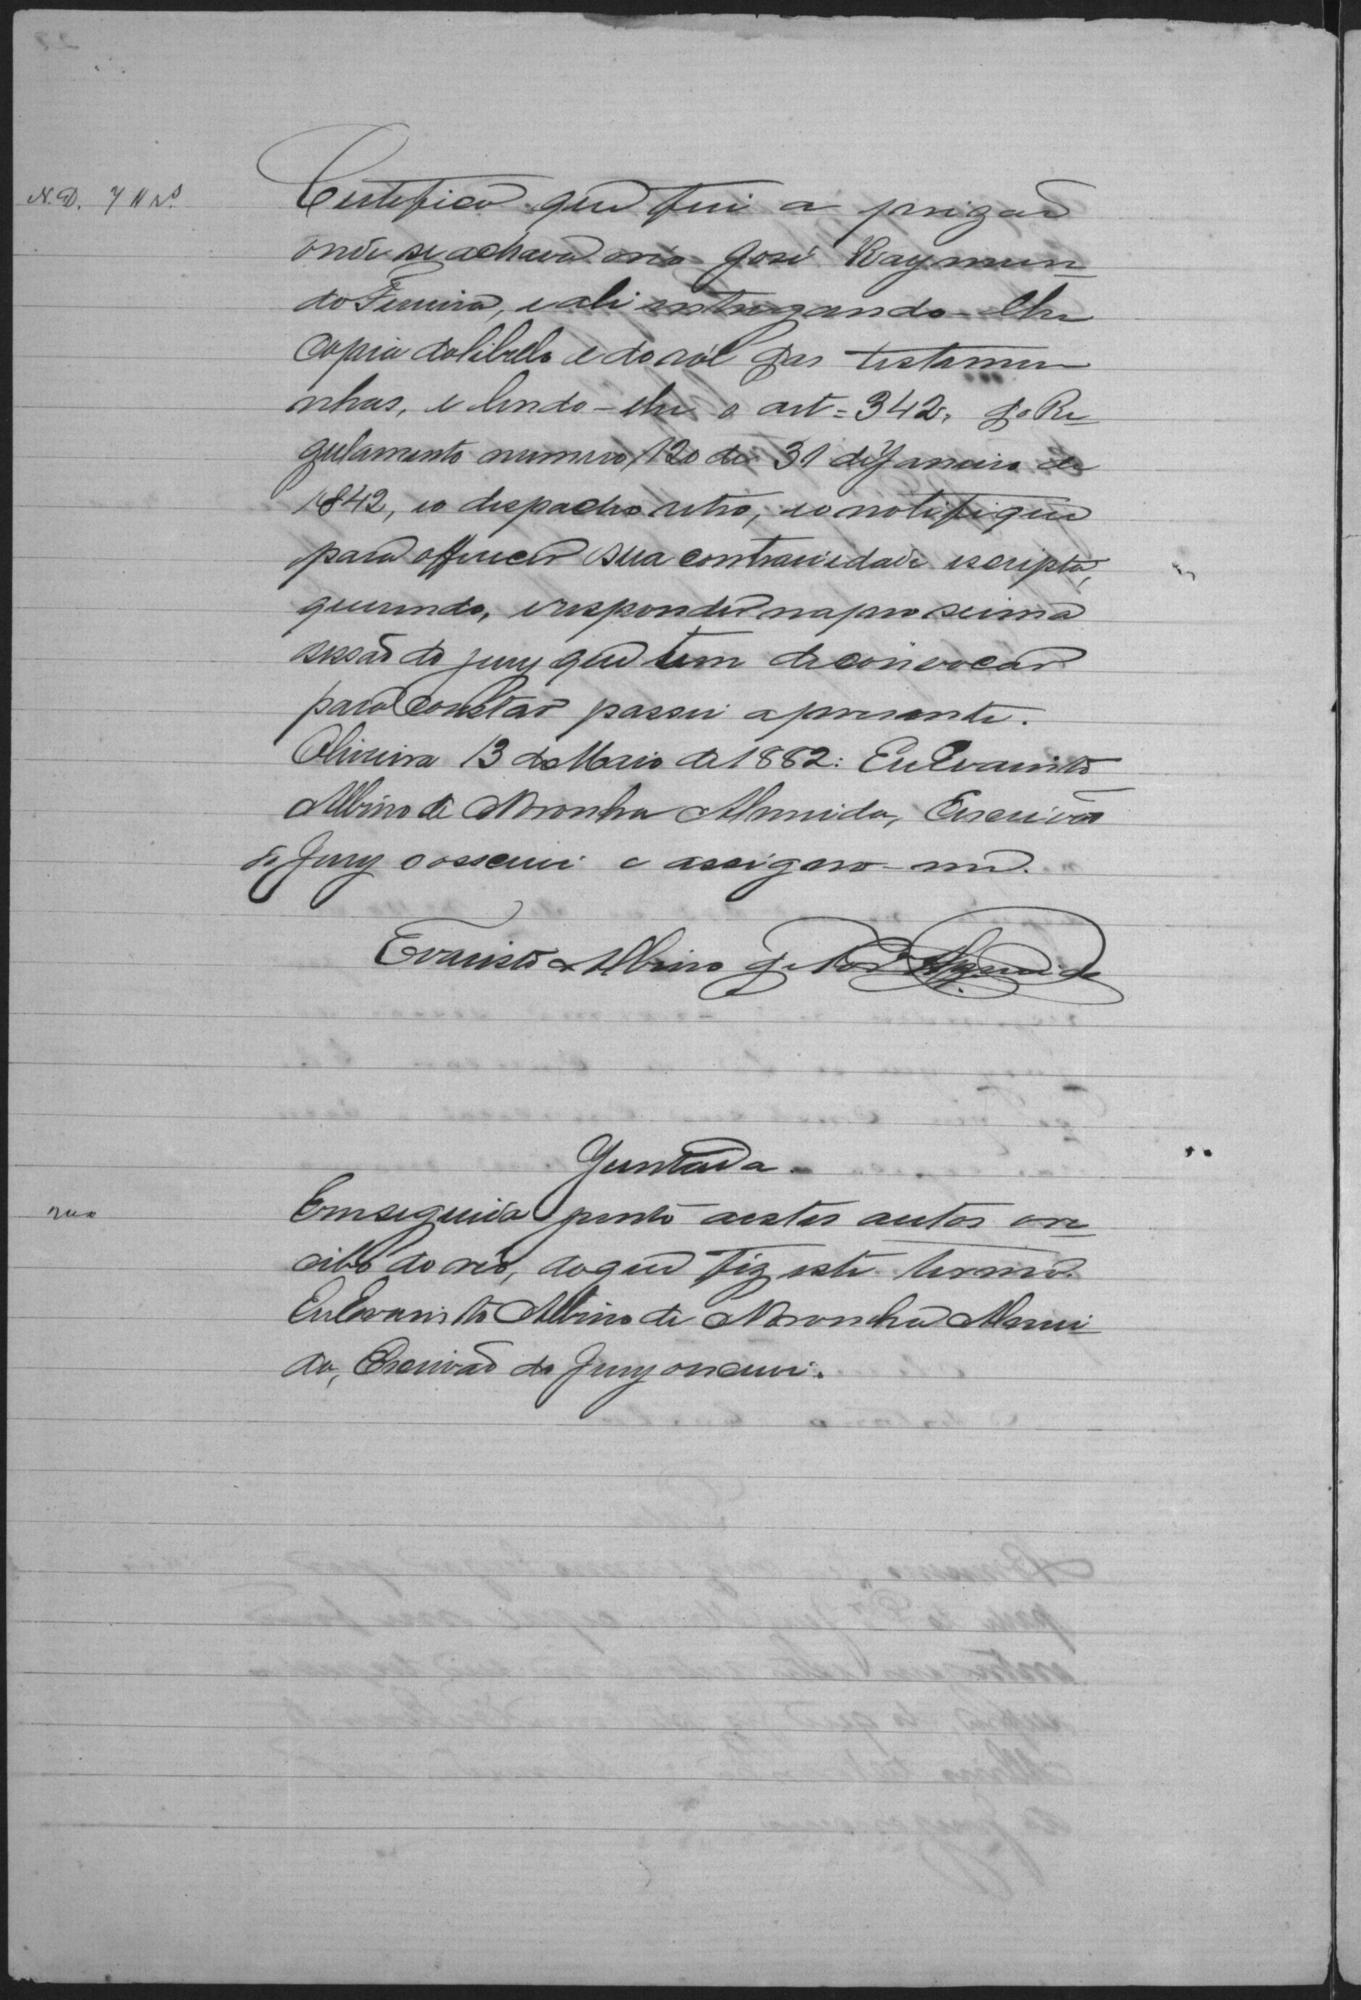 N. D.
Certifico que fui a prizão
onde se achava o réo José Raymun-
do Ferreira, e ali entregando-lhe
copia do libello e do ról das testemu-
nhas, e lendo-lhe o art = 342, do Re-
gulamento numero 120 de 31 de Janeiro de
1842, e o despacho retro, e o notifiquei
para offerecer sua contrariedade escripta,
querendo, e responder na proscima
sessão do jury que tem de convocar
para constar passei a presente.
Oliveira 13 de Maio de 1882: Eu Evaristo
Albino de Noronha Almeida, Escrivão
do Jury o osscrevi e assigno-me.
Evaristo Albino de Nor.ª Almeida
Juntada.
Em seguida junto a estes autos o re-
cibo do réo, do que fiz este termo.
Eu Evaristo Albino de Noronha Almei
da, Escrivão do Jury o escrevi.